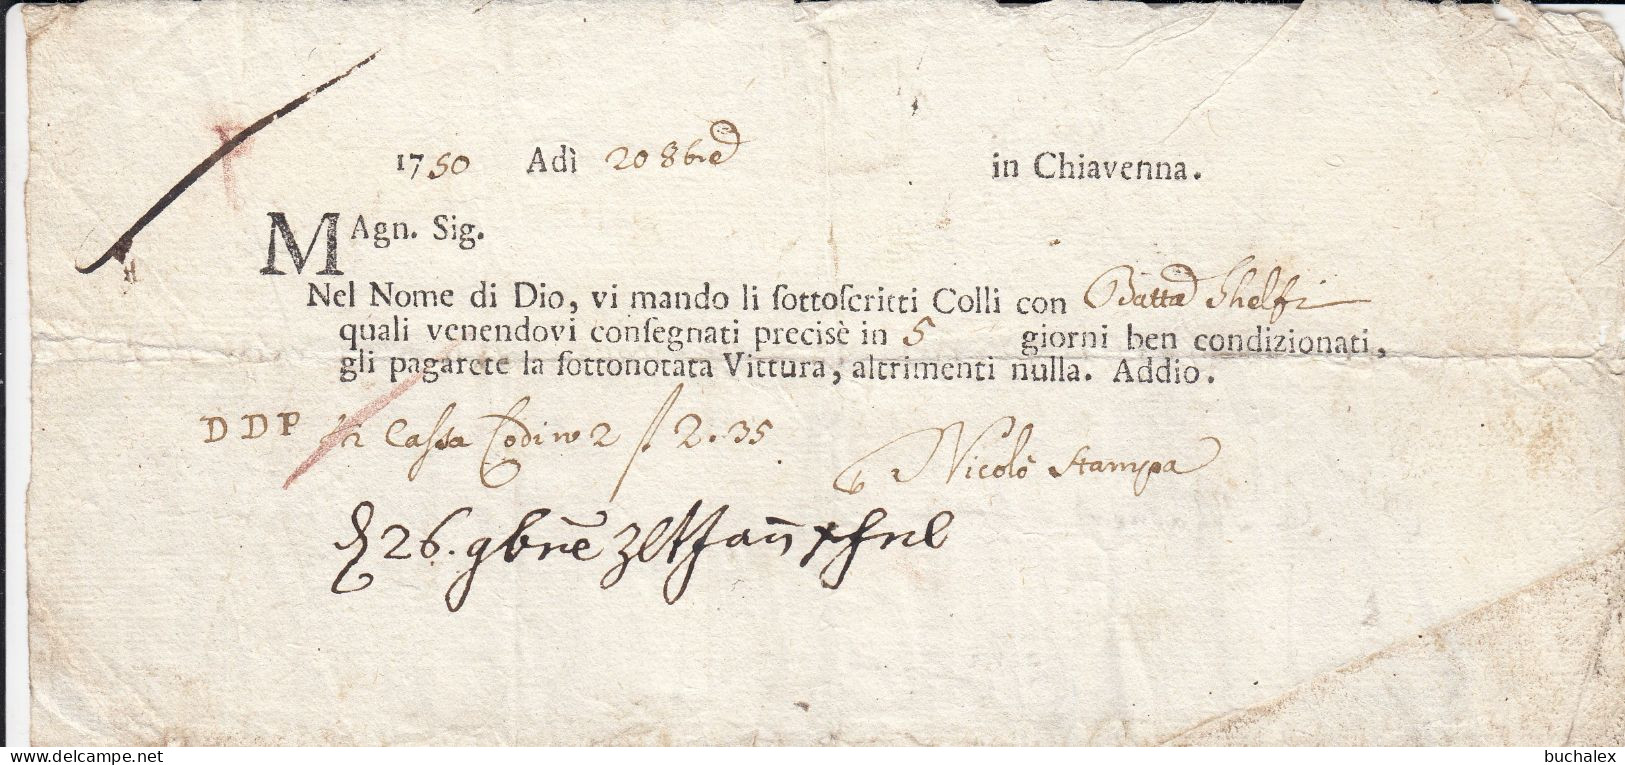 1750 Adì 20 8bre in Chiavenna.
MAgn. Sig.
Nel Nome di Dio, vi mando li sottoscritti Colli con Batta
quali venendovi consegnati precisè in 5 giorni ben condizionati,
gli pagarete la sottonotata Vittura, altrimenti nulla. Addio.
DDP Cassa 2 2.35
Nicolò Stampa
26. 9bre
buchalex